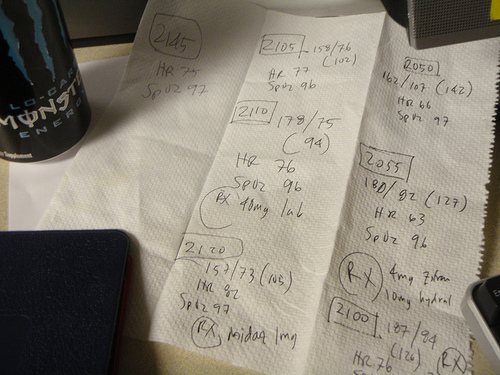 LO-CARB
MONSTER
ENERGY
Supplement
2145
HR 75
SpO2 97
2105 158/76
(102)
HR 77
SpO2 96
2110 178/75
(94)
HR 76
SpO2 96
RX 40mg lab
2120
157/73 (103)
HR 82
SpO2 97
RX midaz 1mg
2050
162/107 (142)
HR 66
SpO2 97
2055
180/82 (127)
HR 63
SpO2 96
RX 4mg Zofran
10mg hydral
2100 187/84
(126) RX
HR 76